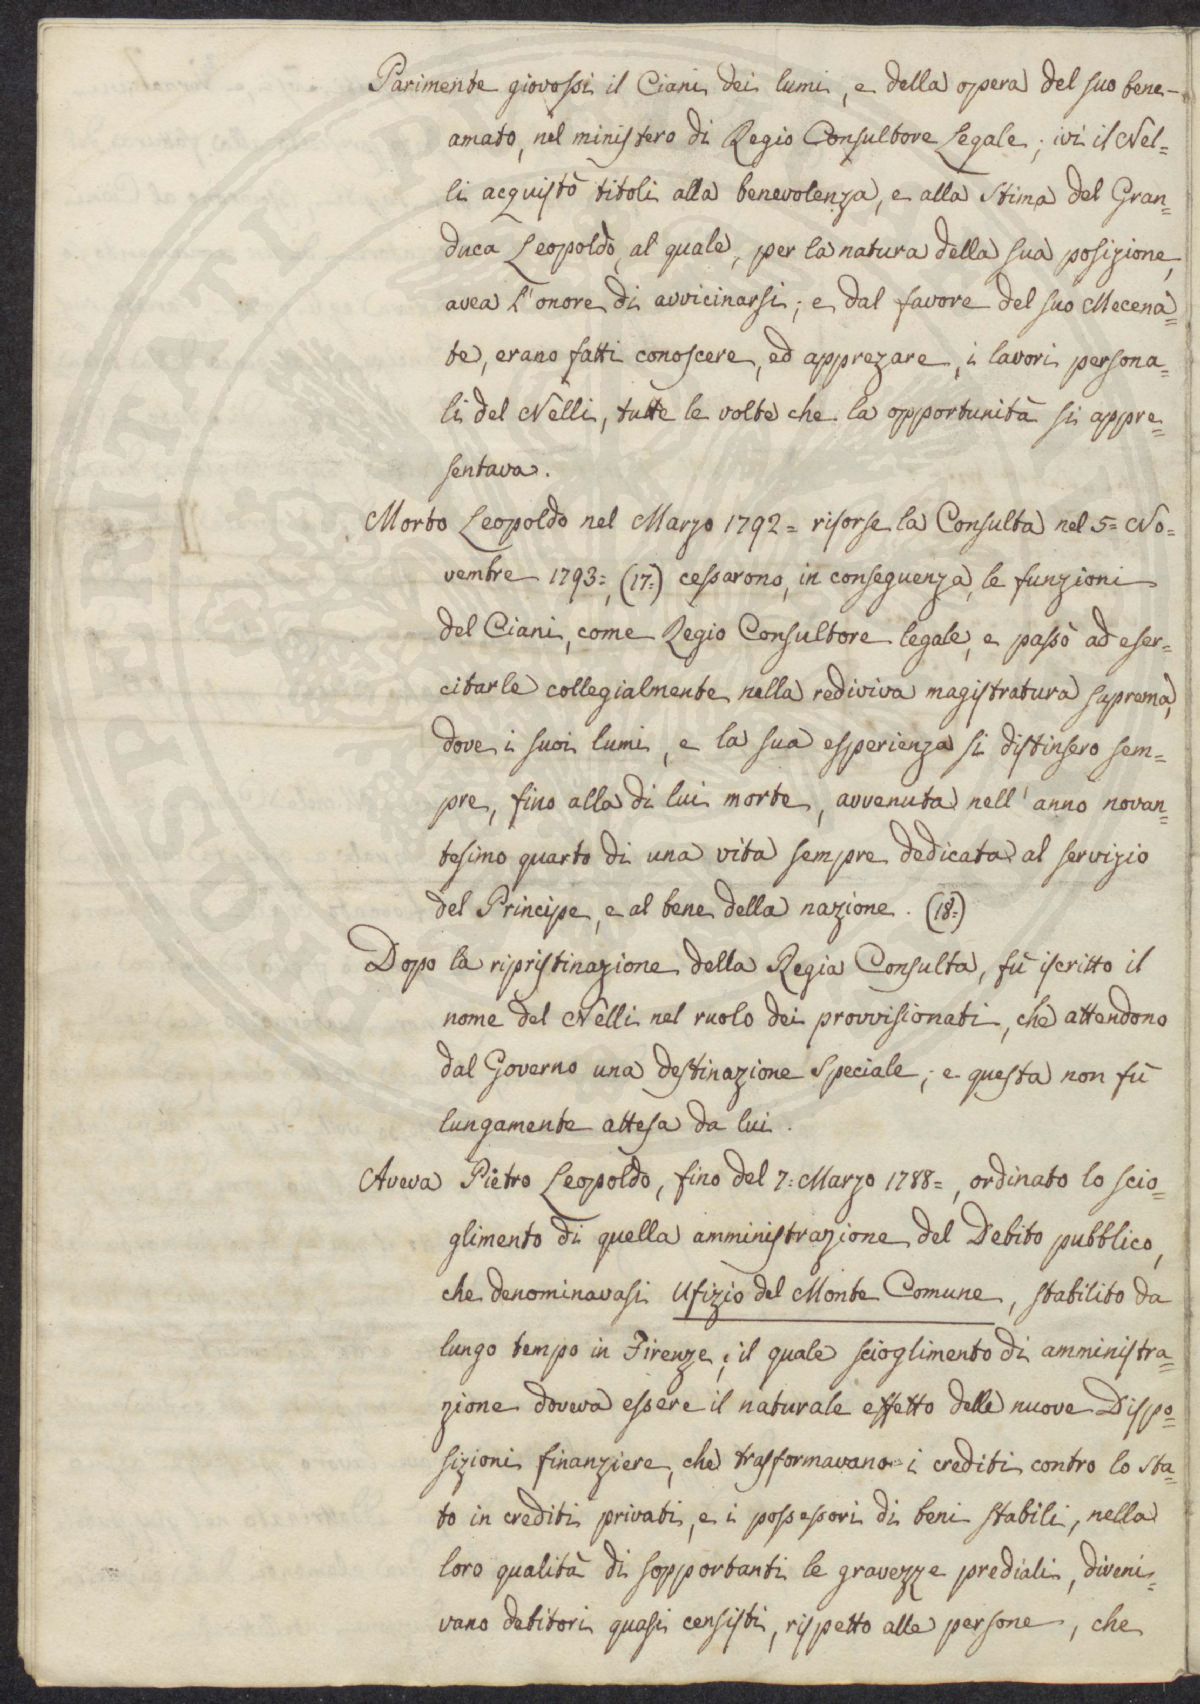 Parimente giovossi il Ciani dei lumi, e della opera del suo bene-
amato, nel ministero di Regio Consultore Legale; ivi il Nel=
li acquistò titoli alla benevolenza, e alla Stima del Gran=
duca Leopoldo, al quale, per la natura della sua posizione,
avea l'onore di avvicinarsi; e dal favore del suo Mecena=
te, erano fatti conoscere, ed apprezare, i lavori persona=
li del Nelli, tutte le volte che la opportunità si appre=
sentava.
Morto Leopoldo nel Marzo 1792= risorse la Consulta nel 5= No=
vembre 1793=, (17=) cessarono, in conseguenza, le funzioni
del Ciani, come Regio Consultore legale, e passò ad eser=
citarle collegialmente nella rediviva magistratura suprema,
dove i suoi lumi, e la sua esperienza si distinsero sem=
pre, fino alla di lui morte, avvenuta nell'anno novan=
tesimo quarto di una vita sempre dedicata al servizio
del Principe, e al bene della nazione. (18=)
Dopo la ripristinazione della Regia Consulta, fù iscritto il
nome del Nelli nel ruolo dei provvisionati, che attendono
dal Governo una destinazione Speciale; e questa non fù
lungamente attesa da lui.
Aveva Pietro Leopoldo, fino del 7= Marzo 1788=, ordinato lo scio=
glimento di quella amministrazione del Debito pubblico,
che denominavasi Ufizio del Monte Comune, stabilito da
lungo tempo in Firenze; il quale scioglimento di amministra=
zione doveva essere il naturale effetto delle nuove Dispo=
sizioni finanziere, che trasformavano i crediti contro lo Sta=
to in crediti privati, e i possessori di beni stabili, nella
loro qualità di sopportanti le gravezze prediali, diveni=
vano debitori quasi censisti, rispetto alle persone, che